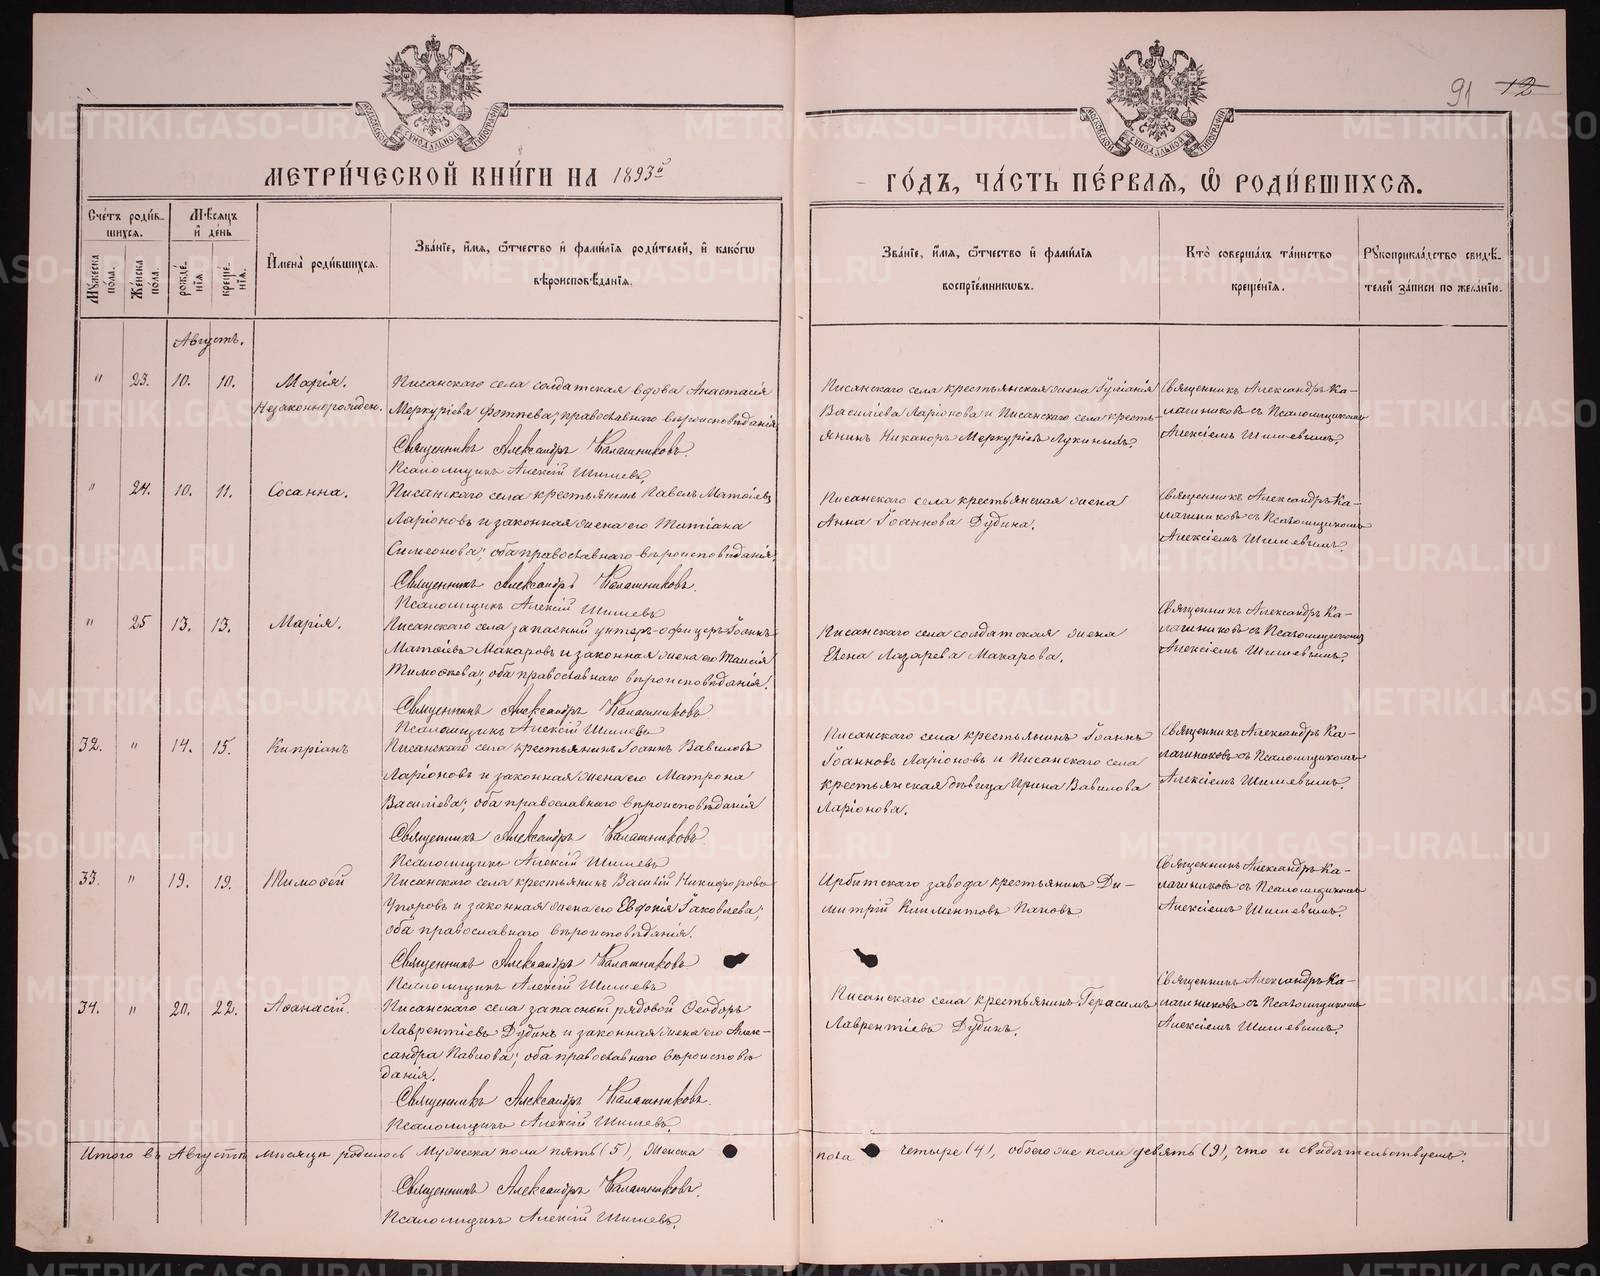 91 12
МОСКОВСКОЙ СѴНОДАЛЬНОЙ ТИПОГРАФІИ
МОСКОВСКОЙ СѴНОДАЛЬНОЙ ТИПОГРАФІИ
МЕТРИ́ЧЕСКОЙ КНИ́ГИ НА 1893й
ГО́ДЪ, ЧА́СТЬ ПЕ́РВАЯ, Ѡ҆ РОДИ́ВШИХСЯ.
Сче́тъ роди́в-
шихся.
Мꙋ́жеска пола.
Же́нска по́ла.
Мѣ́сяцъ
и҆ де́нь
рожде́нїя.
креще́нїя.
И҆мена̀ роди́вшихся.
Зва́нїе, и҆́мя, ѻ҆́тчество и҆ фами́лїя роди́телей, и҆ како́гѡ
вѣроисповѣ́данїя.
Зва́нїе, и҆́мя, ѻ҆́тчество и҆ фами́лїя
воспрїе́мникѡвъ.
Кто̀ соверша́лъ та́инство
креще́нїя.
Рꙋкоприкла́дство свидѣ́-
телей за́писи по жела́нїю.
Августъ.
" 23. 10. 10. Марія.
Незаконнорожден.
Писанскаго села солдатская вдова Анастасія
Меркуріева Фотѣева, православнаго вѣроисповѣданія
Священникъ Александръ Калашниковъ.
Псаломщикъ Алексій Шишевъ.
Писанскаго села крестьянская жена Іуліанія
Василіева Ларіонова и Писанскаго села кресть-
янинъ Никаноръ Меркуріевъ Лукиныхъ.
Священникъ Александръ Ка-
лашниковъ съ Псаломщикомъ
Алексіемъ Шишевымъ.
" 24. 10. 11. Сосанна.
Писанскаго села крестьянинъ Павелъ Матѳіевъ
Ларіоновъ и законная жена его Татіана
Симеонова; оба православнаго вѣроисповѣданія
Священникъ Александръ Калашниковъ.
Псаломщикъ Алексій Шишевъ
Писанскаго села крестьянская жена
Анна Іоаннова Дубина.
Священникъ Александръ Ка-
лашниковъ съ Псаломщикомъ
Алексіемъ Шишевымъ.
" 25 13. 13. Марія.
Писанскаго села запасный унтеръ-офицеръ Іоаннъ
Матѳіевъ Макаровъ и законная жена его Таисія
Тимоѳеева; оба православнаго вѣроисповѣданія.
Священникъ Александръ Калашниковъ
Псаломщикъ Алексій Шишевъ
Писанскаго села солдатская жена
Елена Лазарева Макарова.
Священникъ Александръ Ка-
лашниковъ съ Псаломщикомъ
Алексіемъ Шишевымъ.
32. " 14. 15. Кипріанъ
Писанскаго села крестьянинъ Іоаннъ Вавиловъ
Ларіоновъ и законная жена его Матрона
Василіева; оба православнаго вѣроисповѣданія
Священникъ Александръ Калашниковъ
Псаломщикъ Алексій Шишевъ
Писанскаго села крестьянинъ Іоаннъ
Іоанновъ Ларіоновъ и Писанскаго села
крестьянская дѣвица Ирина Вавилова
Ларіонова.
Священникъ Александръ Ка-
лашниковъ съ Псаломщикомъ
Алексіемъ Шишевымъ.
33. " 19. 19. Тимоѳей
Писанскаго села крестьянинъ Василій Никифоровъ
Упоровъ и законная жена его Евдокія Іаковлева;
оба православнаго вѣроисповѣданія.
Священникъ Александръ Калашниковъ
Псаломщикъ Алексій Шишевъ
Ирбитскаго завода крестьянинъ Ди-
митрій Климентовъ Паповъ.
Священникъ Александръ Ка-
лашниковъ съ Псаломщикомъ
Алексіемъ Шишевымъ.
34. " 20. 22. Аѳанасій.
Писанскаго села запасный рядовой Ѳеодоръ
Лаврентіевъ Дубинъ и законная жена его Алек-
сандра Павлова; оба православнаго вѣроисповѣ
данія.
Священникъ Александръ Калашниковъ.
Псаломщикъ Алексій Шишевъ.
Писанскаго села крестьянинъ Герасимъ
Лаврентіевъ Дубинъ.
Священникъ Александръ Ка-
лашниковъ съ Псаломщикомъ
Алексіемъ Шишевымъ.
Итого въ Августѣ мѣсяцѣ родилось Мужеска пола пять (5), Женска
пола четыре (4), обоего же пола девять (9), что и свидѣтельствуемъ:
Священникъ Александръ Калашниковъ.
Псаломщикъ Алексій Шишевъ.
METRIKI.GASO-URAL.RU